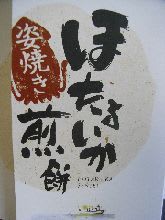 ほたるいか
姿焼き
煎餅
HOTARUIKA
SENBEI